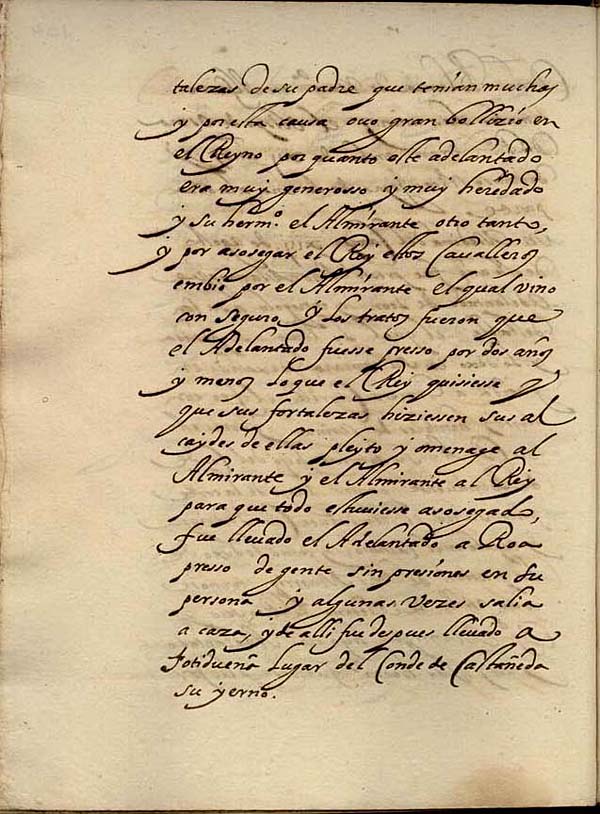 talezas de su padre que tenían muchas
y por esta causa ovo gran bollizio en
el Reyno por quanto este adelantado
era muy generosso y muy heredado
y su herm.º el Almirante otro tanto,
y por asosegar el Rey estos Cavalleros
embió por el Almirante el qual vino
con seguro, y los tratos fueron que
el Adelantado fuesse presso por dos años
y menos lo que el Rey quisiesse y
que sus fortalezas hiziessen sus al
caydes de ellas pleyto y omenage al
Almirante y el Almirante al Rey
para que todo estuviesse asosegado,
fue llevado el Adelantado a Roa
presso de gente sin presiones en su
persona y algunas vezes salia
a caza, y de alli fue despues llevado a
fotidueña lugar del Conde de Castañeda
su yerno.